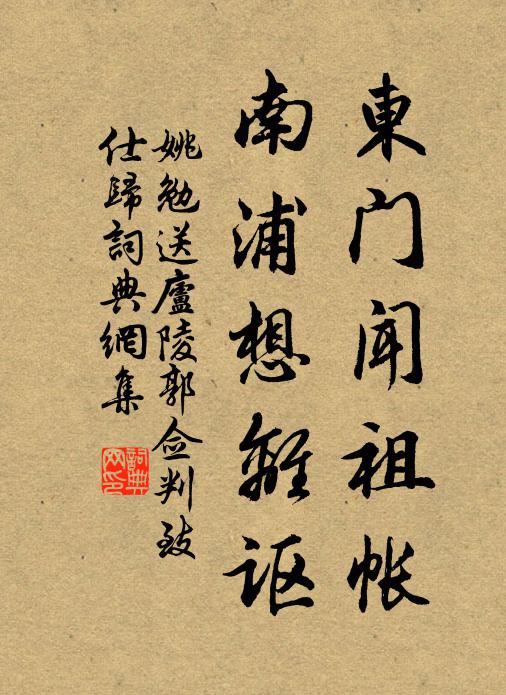 東门闻祖帐
南浦想離讴
姚勉送廬陵郭佥判致
仕歸詞典網集
詞典网印